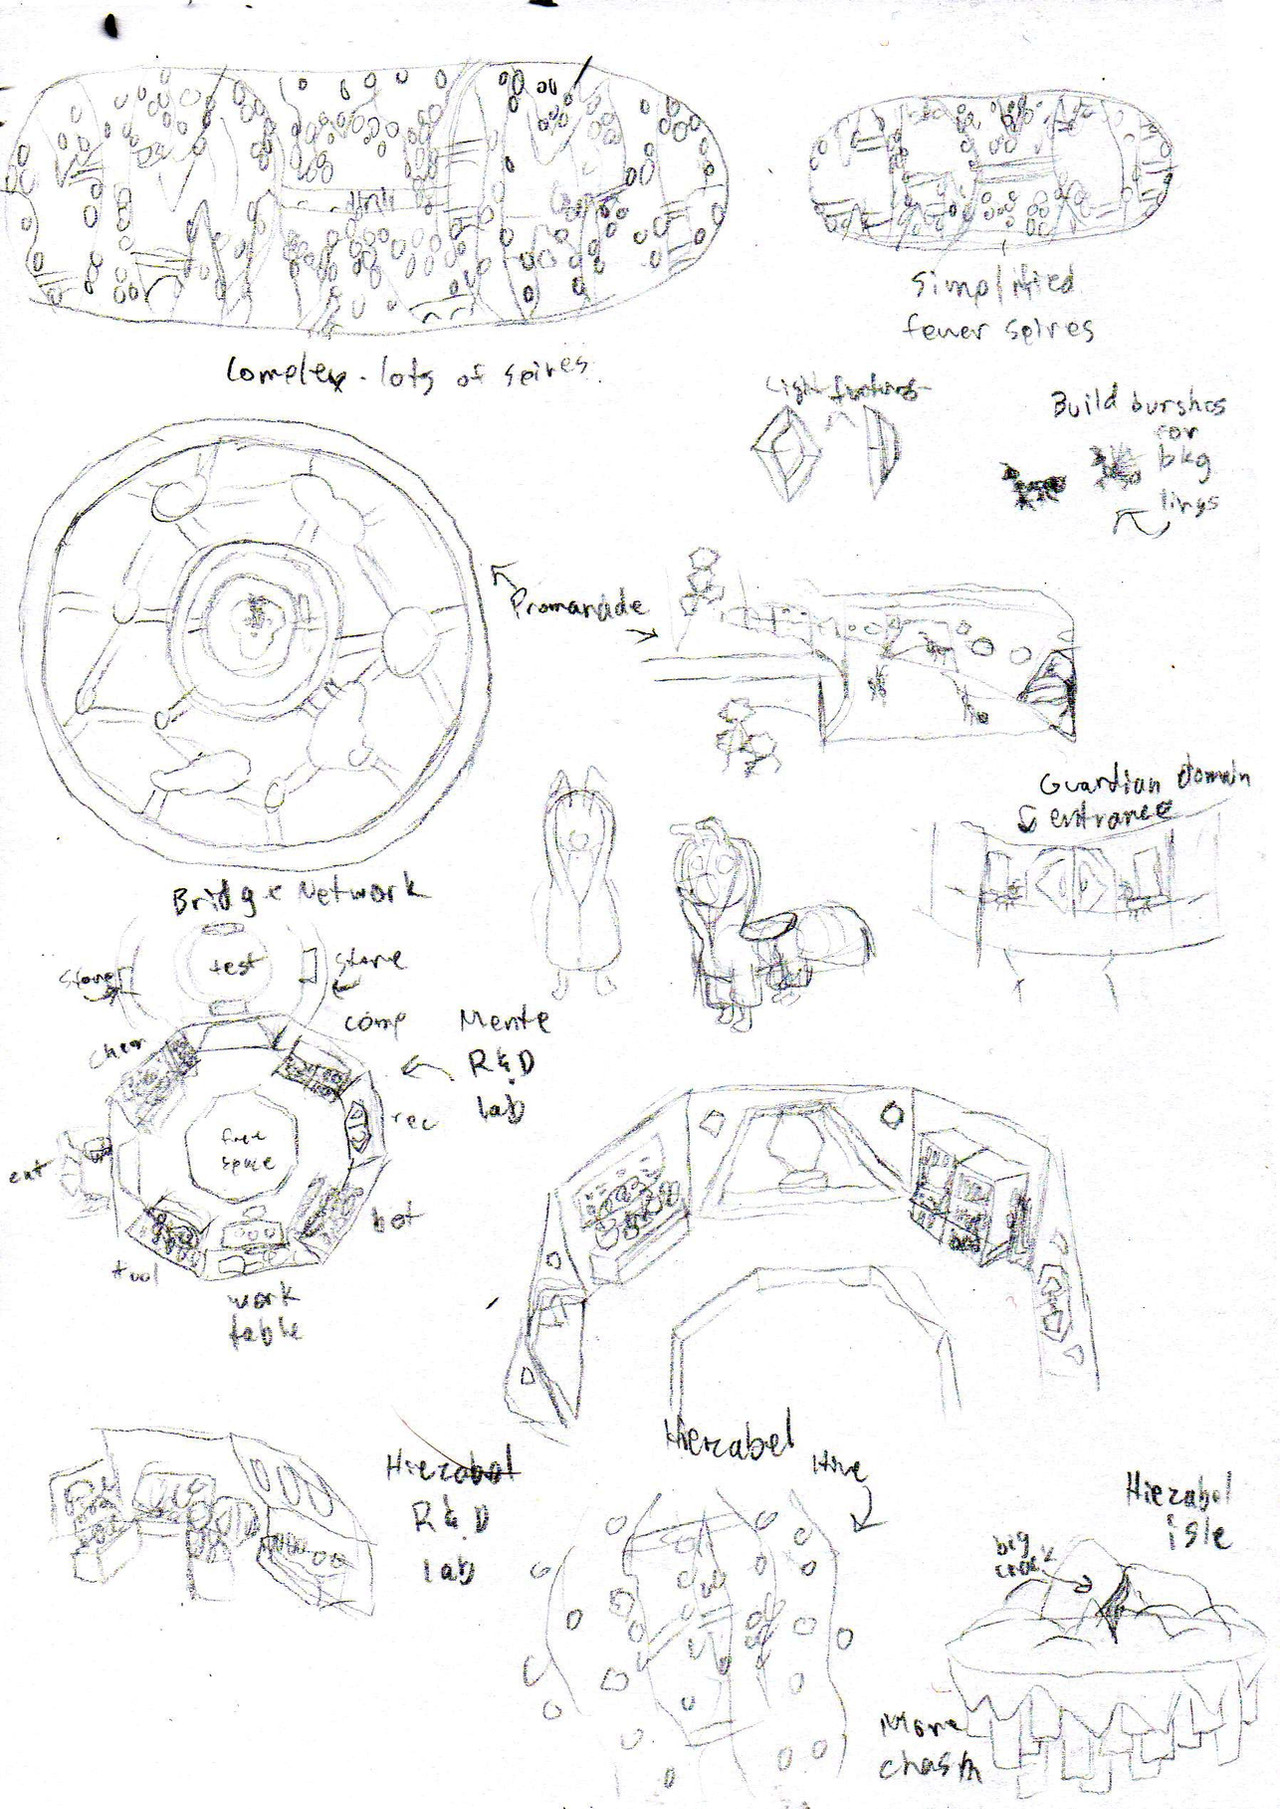 Complex - lots of spires
Simplified
fewer spires
Light fixtures
Build burshes
for
bkg
lings
Promanade
Guardian domain
entrance
Bridge Network
test
store
store
chem
comp
Mente
R&D
lab
rec
free
space
eat
bot
tool
work
table
Hierabol
R&D
lab
Hierabel
Hive
Hierabol
isle
big
crack
More
chasm